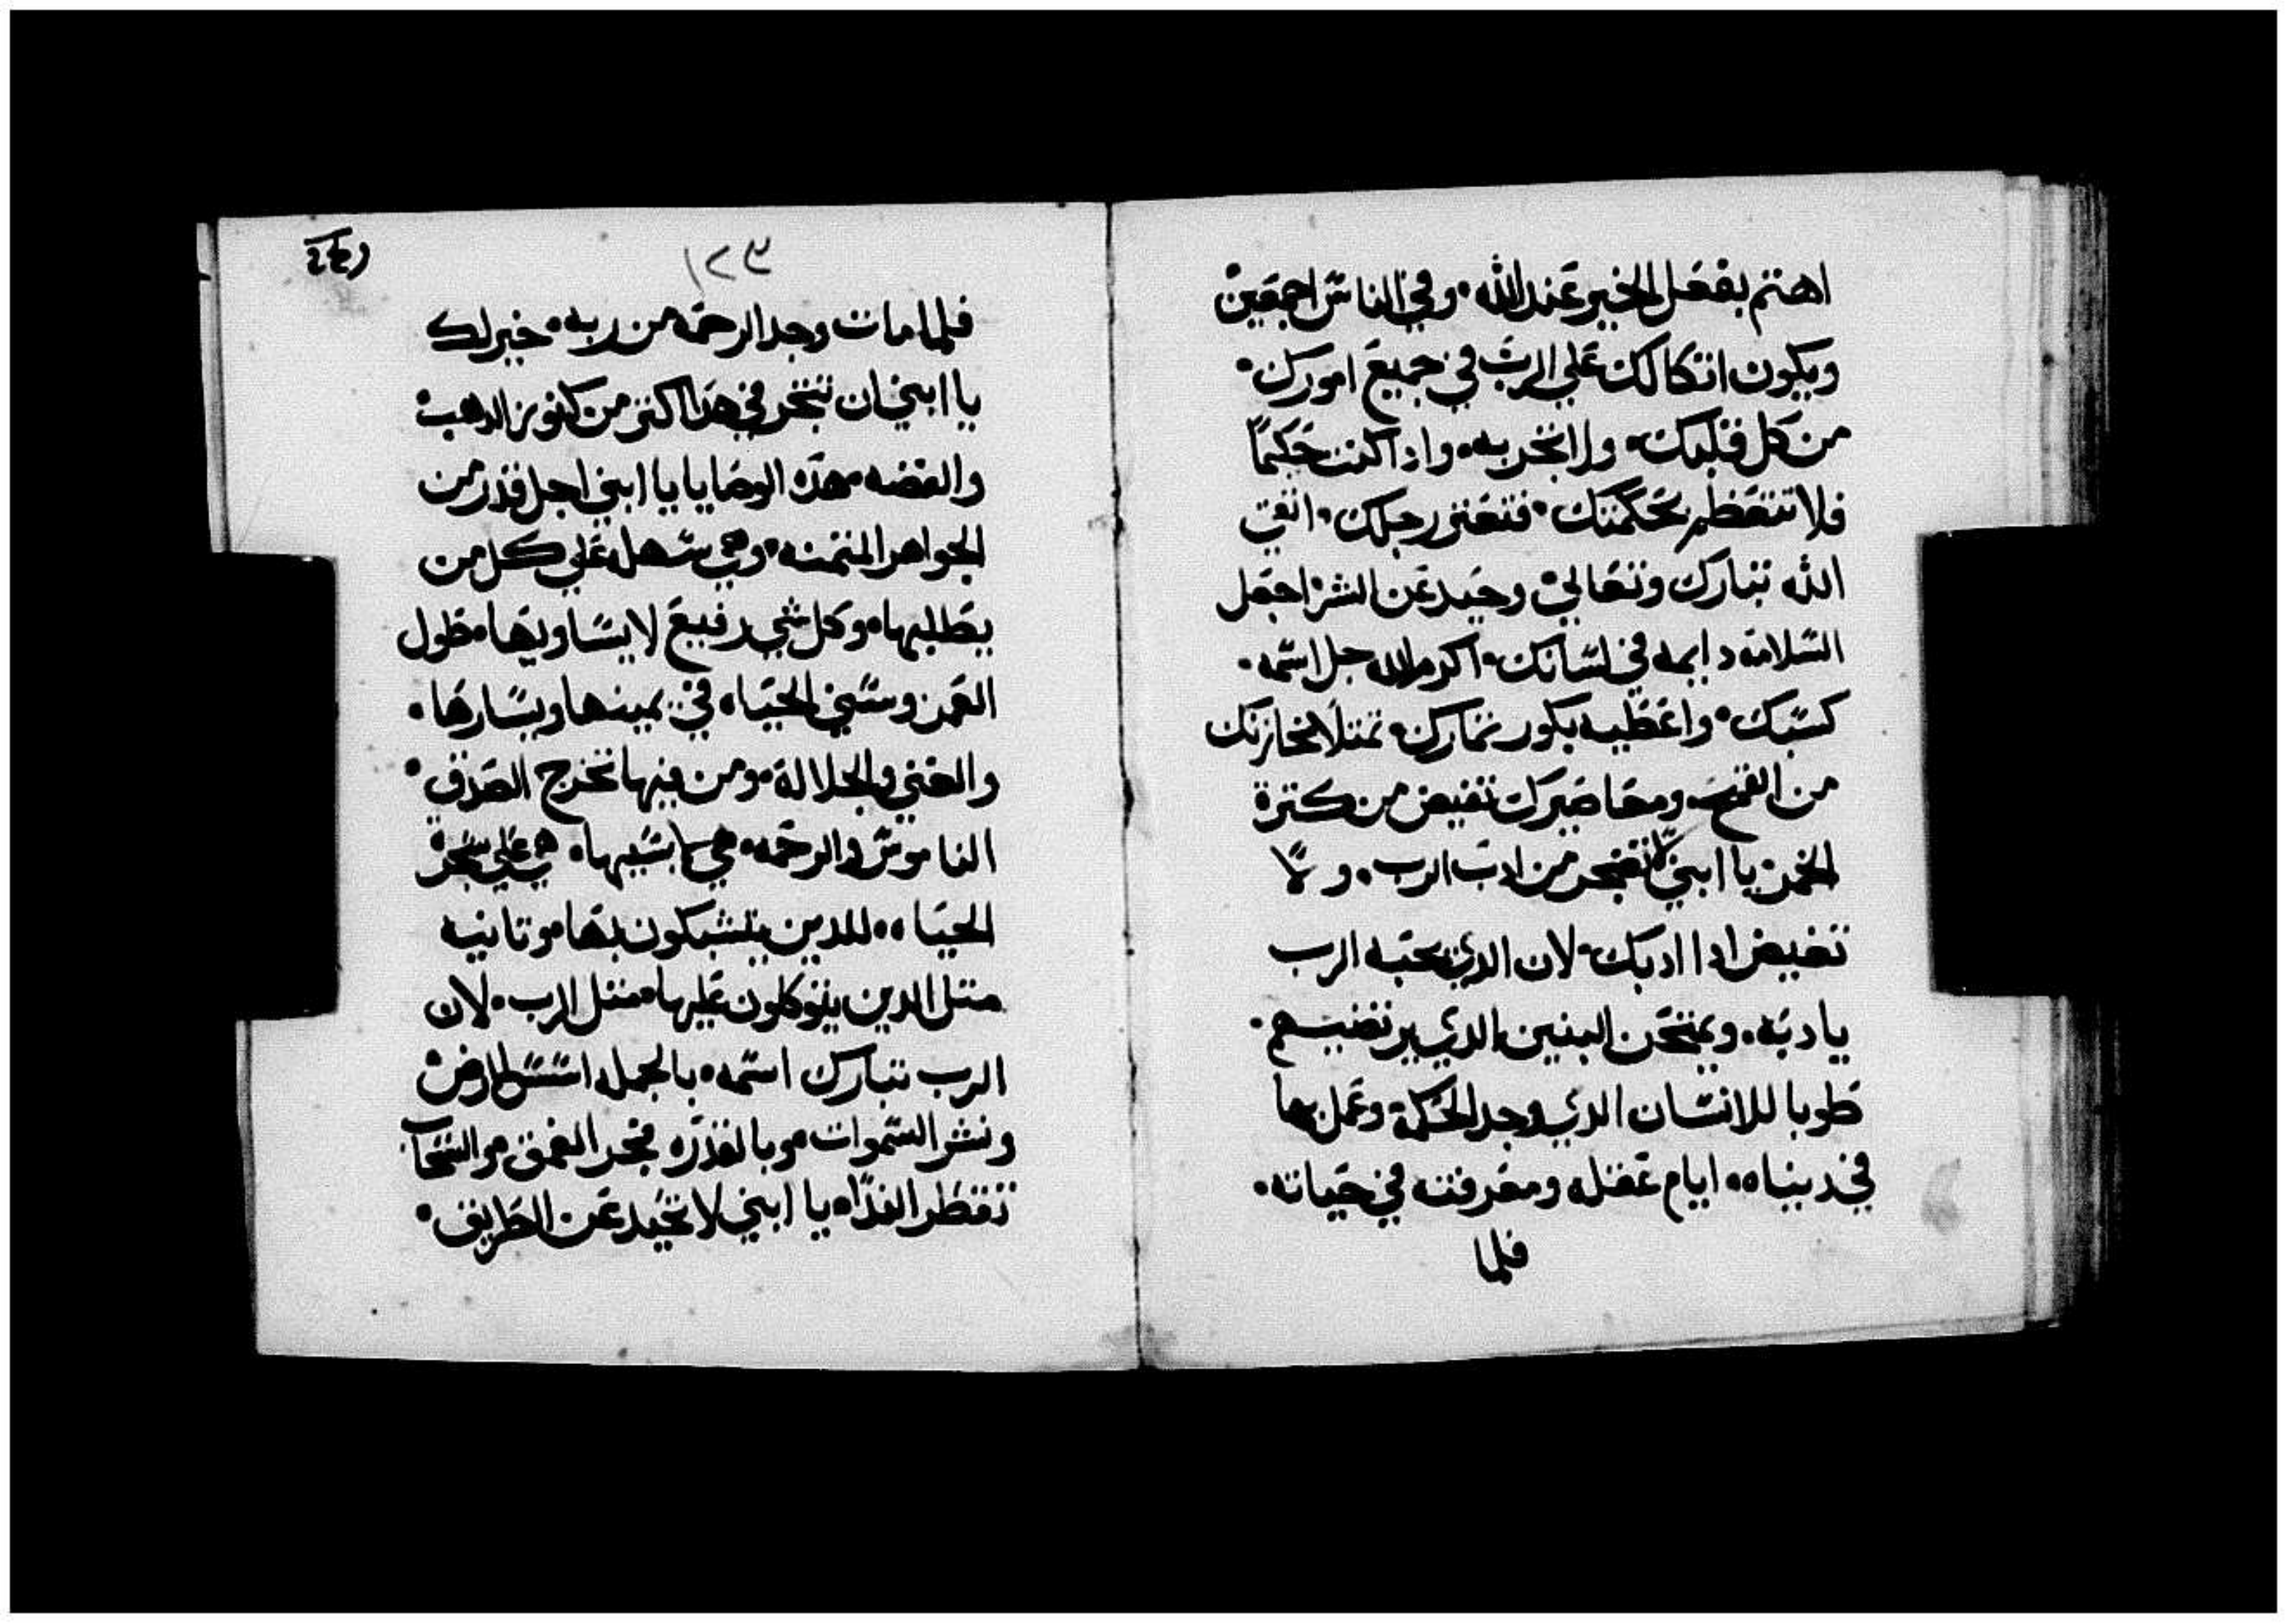 اهتم بفعل الخير عند الله • وفي الناس اجمعين
ويكون اتكالك علي الرب في جميع امورك •
من كل قلبك • ولا تفتخر به • وادا كنت حكيماً
فلا تتعظم بحكمتك • فتعتر رجلك • اتقي
الله تبارك وتعالي وحيد عن الشر اجعل
السلامة دايمه في لسانك • اكرم الله جل اسمه •
كسبك • واعطيه بكور تمارك • تمتلا مخازنك
من القمح • ومعاصيرك تفيض من كترة
الخمر • يا ابني لا تضجر من ادب الرب • ولا
تغيض ادا ادبك • لان الدي يحبه الرب
يادبه • ويمتحن البنين الدي يرتضيهم •
طوبا للانسان الدي وجد الحكمة وعمل بها
في دنياه • ايام عقله ومعرفته في حياته •
فلما
١٢٣
فلما مات وجد الرحمه من ربه • خير لك
يا ابني ان تتجر في هدا اكتر من كنوز الدهب
والفضه • هده الوصايا يا ابني اجل قدر من
الجواهر المتمنه • وهي سهله علي كل من
يطلبها • وكل شي رفيع لا يساويها • طول
العمر وسني الحياه في يمينها ويسارها •
والغني والجلالة • ومن فيها تخرج الصدق •
الناموس والرحمه • هي هي علي شجر
الحياه • للدين يتشبكون بها • وتانيه
متل الدين يتوكلون عليها • متل الرب • لان
الرب تبارك اسمه • بالجمله اسس الارض
ونشر السموات • وبالقدره فجر العمق • والسحاب
تقطر الندا • يا ابني لا تحيد عن الطريق •